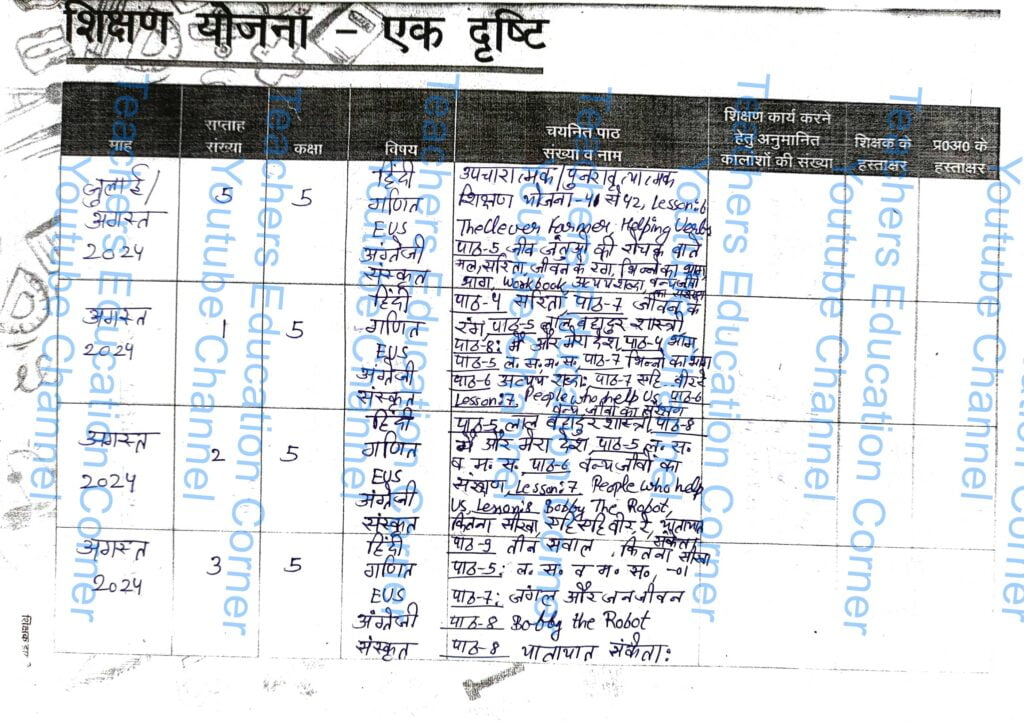 शिक्षण योजना – एक दृष्टि
माह
सप्ताह संख्या
कक्षा
विषय
चयनित पाठ संख्या व नाम
शिक्षण कार्य करने हेतु अनुमानित कालांशों की संख्या
शिक्षक के हस्ताक्षर
प्र0अ0 के हस्ताक्षर
जुलाई/
अगस्त
2024
5
5
हिंदी
गणित
EVS
अंग्रेजी
संस्कृत
उपचारात्मक/पुनरावृत्यात्मक
शिक्षण योजना-41 से 42, Lesson:6
The Clever Farmer, Helping Verbs
पाठ-5, जीव जंतुओं की रोचक बातें
सरिता, जीवन के रंग, भिन्न का
भाग, Workbook
अगस्त
2024
1
5
हिंदी
गणित
EVS
अंग्रेजी
संस्कृत
पाठ-4 सरिता, पाठ-7 जीवन के
रंग, पाठ-5 लाल बहादुर शास्त्री
पाठ-8: मैं और मेरा देश, पाठ-4 भाग
पाठ-5 ल. स. म. स. पाठ-7 भिन्नों का भाग
पाठ-6 पाठ-7
Lesson:7, People who help Us, पाठ-6
वन्य जीवों का संरक्षण
अगस्त
2024
2
5
हिंदी
गणित
EVS
अंग्रेजी
संस्कृत
पाठ-5, लाल बहादुर शास्त्री, पाठ-8
मैं और मेरा देश, पाठ-5, ल. स.
व म. स. पाठ-6 वन्यजीवों का
संरक्षण, Lesson:7 People who help
Us, Lesson:8 Bobby The Robot,
कितना सीखा यातायात
संकेताः
अगस्त
2024
3
5
हिंदी
गणित
EVS
अंग्रेजी
संस्कृत
पाठ-9 तीन सवाल, कितना सीखा
पाठ-5: ल. स. व म. स. -01
पाठ-7: जंगल और जनजीवन
पाठ-8 Bobby the Robot
पाठ-8 यातायात संकेताः
Teachers Education Corner
Youtube Channel
Teachers Education Corner
Youtube Channel
Teachers Education Corner
Youtube Channel
Teachers Education Corner
Youtube Channel
Teachers Education Corner
Youtube Channel
Teachers Education Corner
Youtube Channel